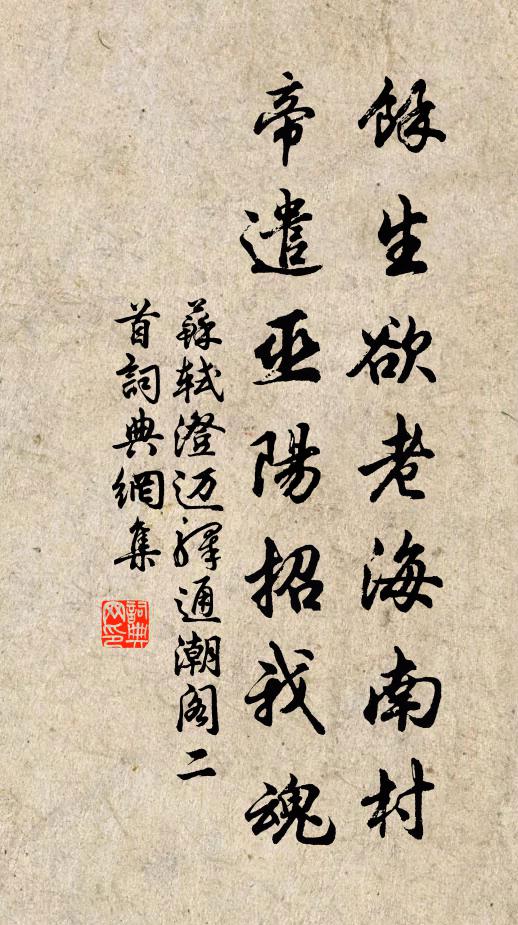 餘生欲老海南村
帝遣巫陽招我魂
蘇軾澄迈驛通潮閣二
首詞典網集
詞典
网印